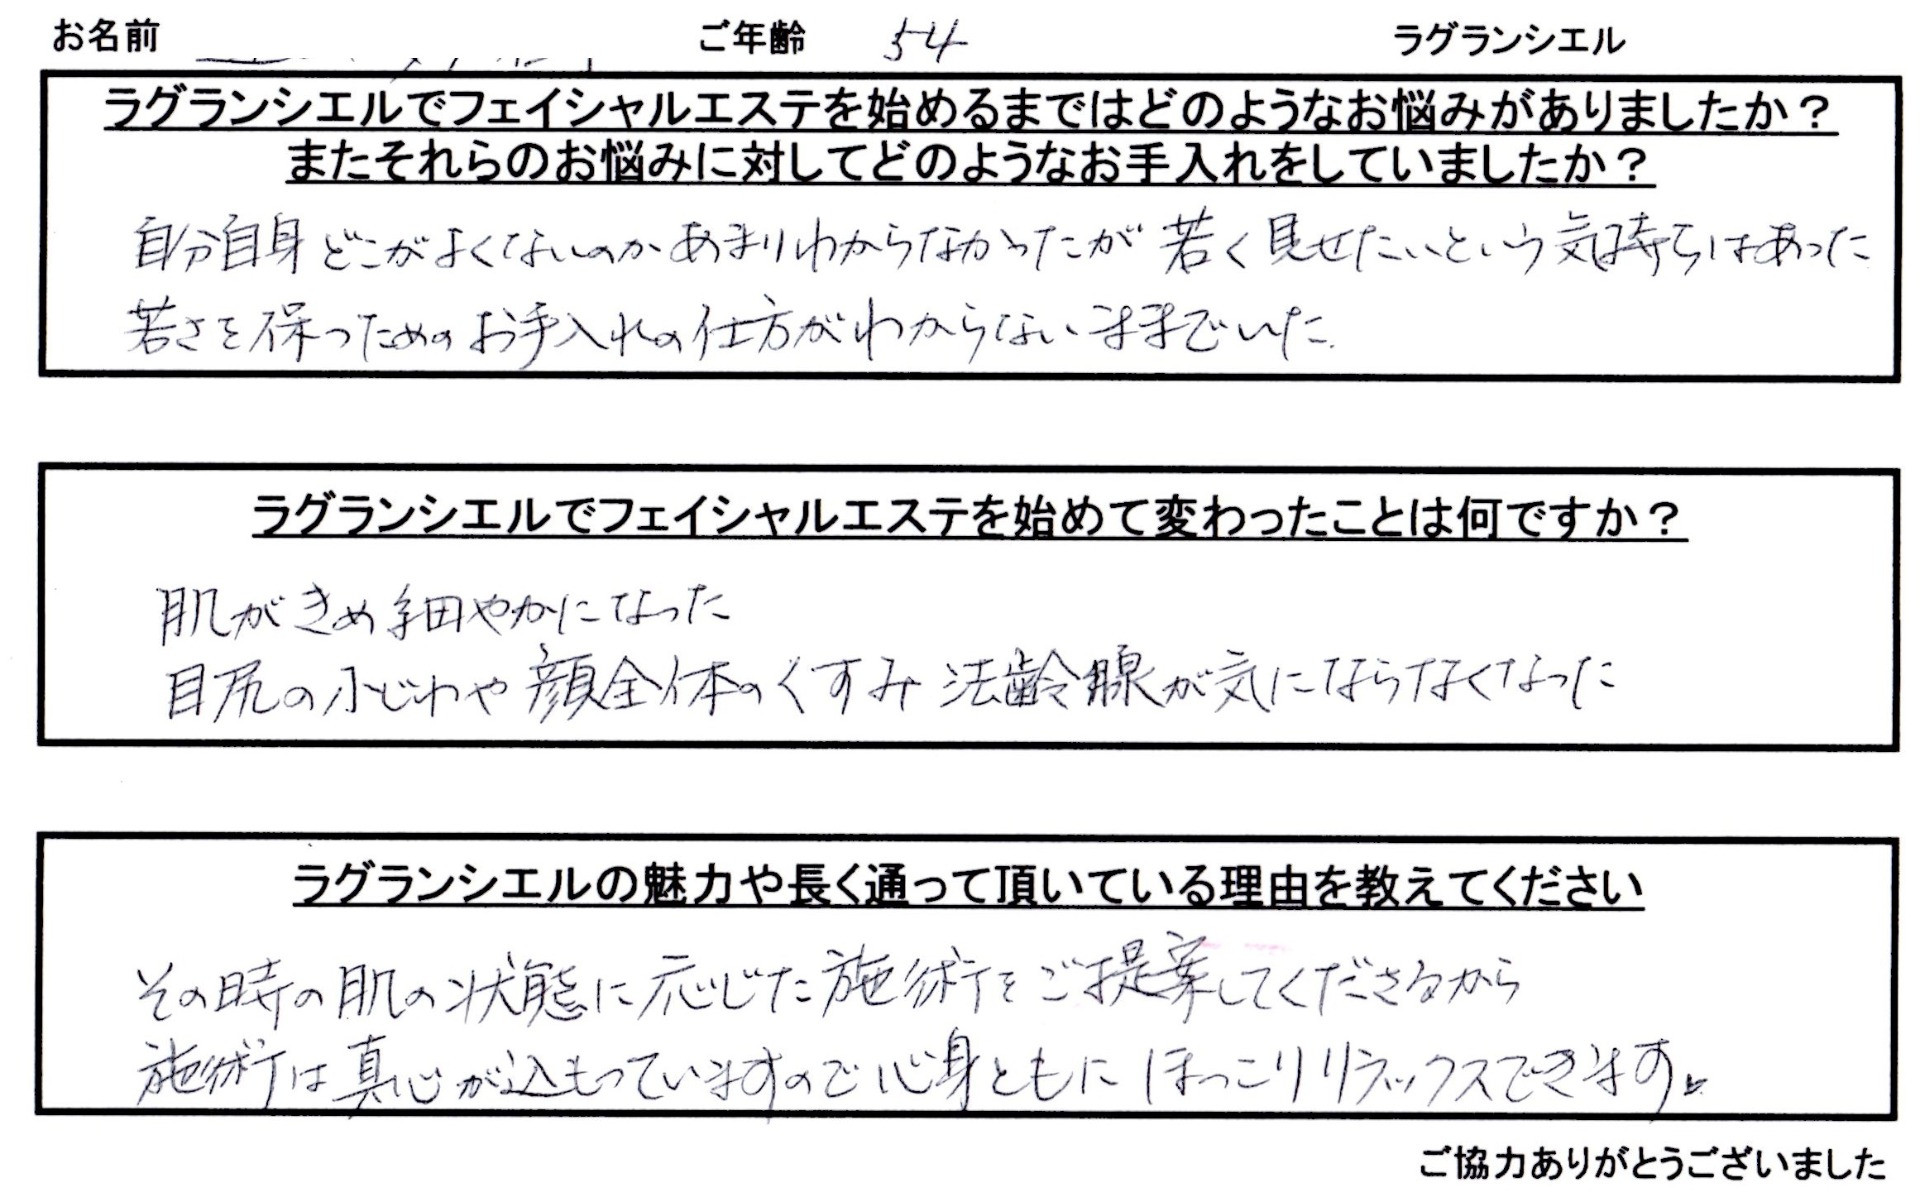 お名前 ご年齢 54 ラグランシエル
ラグランシエルでフェイシャルエステを始めるまではどのようなお悩みがありましたか？
またそれらのお悩みに対してどのようなお手入れをしていましたか？
自分自身どこがよくないのかあまりわからなかったが 若く見せたいという気持ちはあった
若さを保つためのお手入れの仕方がわからないままでいた.
ラグランシエルでフェイシャルエステを始めて変わったことは何ですか？
肌がきめ細やかになった
目尻の小じわや顔全体のくすみ 法齢腺が気にならなくなった
ラグランシエルの魅力や長く通って頂いている理由を教えてください
その時の肌の状態に応じた施術をご提案してくださるから
施術は真心が込もっていますので心身ともに ほっこりリラックスできます。
ご協力ありがとうございました